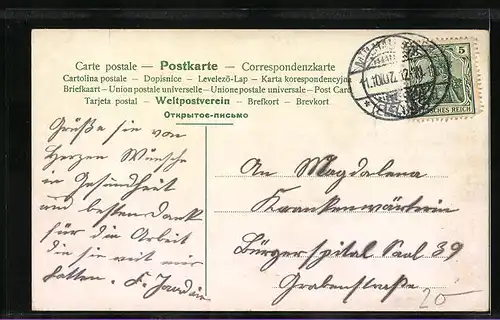 Carte postale — Postkarte — Correspondenzkarte
Cartolina postale — Dopisnice — Levelező-Lap — Karta korespondencyjna
Briefkaart — Union postale universelle — Unione postale universale — Post Card
Tarjeta postal — Weltpostverein — Brefkort — Brevkort
Открытое-письмо
5
DEUTSCHES REICH
Grüße sie von
Herzen Wünsche
in Gesundheit
und besten Dank
für die Arbeit
die sie mit mir
hatten. F.
An Magdalena
Krankenwärterin
Bürgerspital Saal 39
Grabenstraße
20-